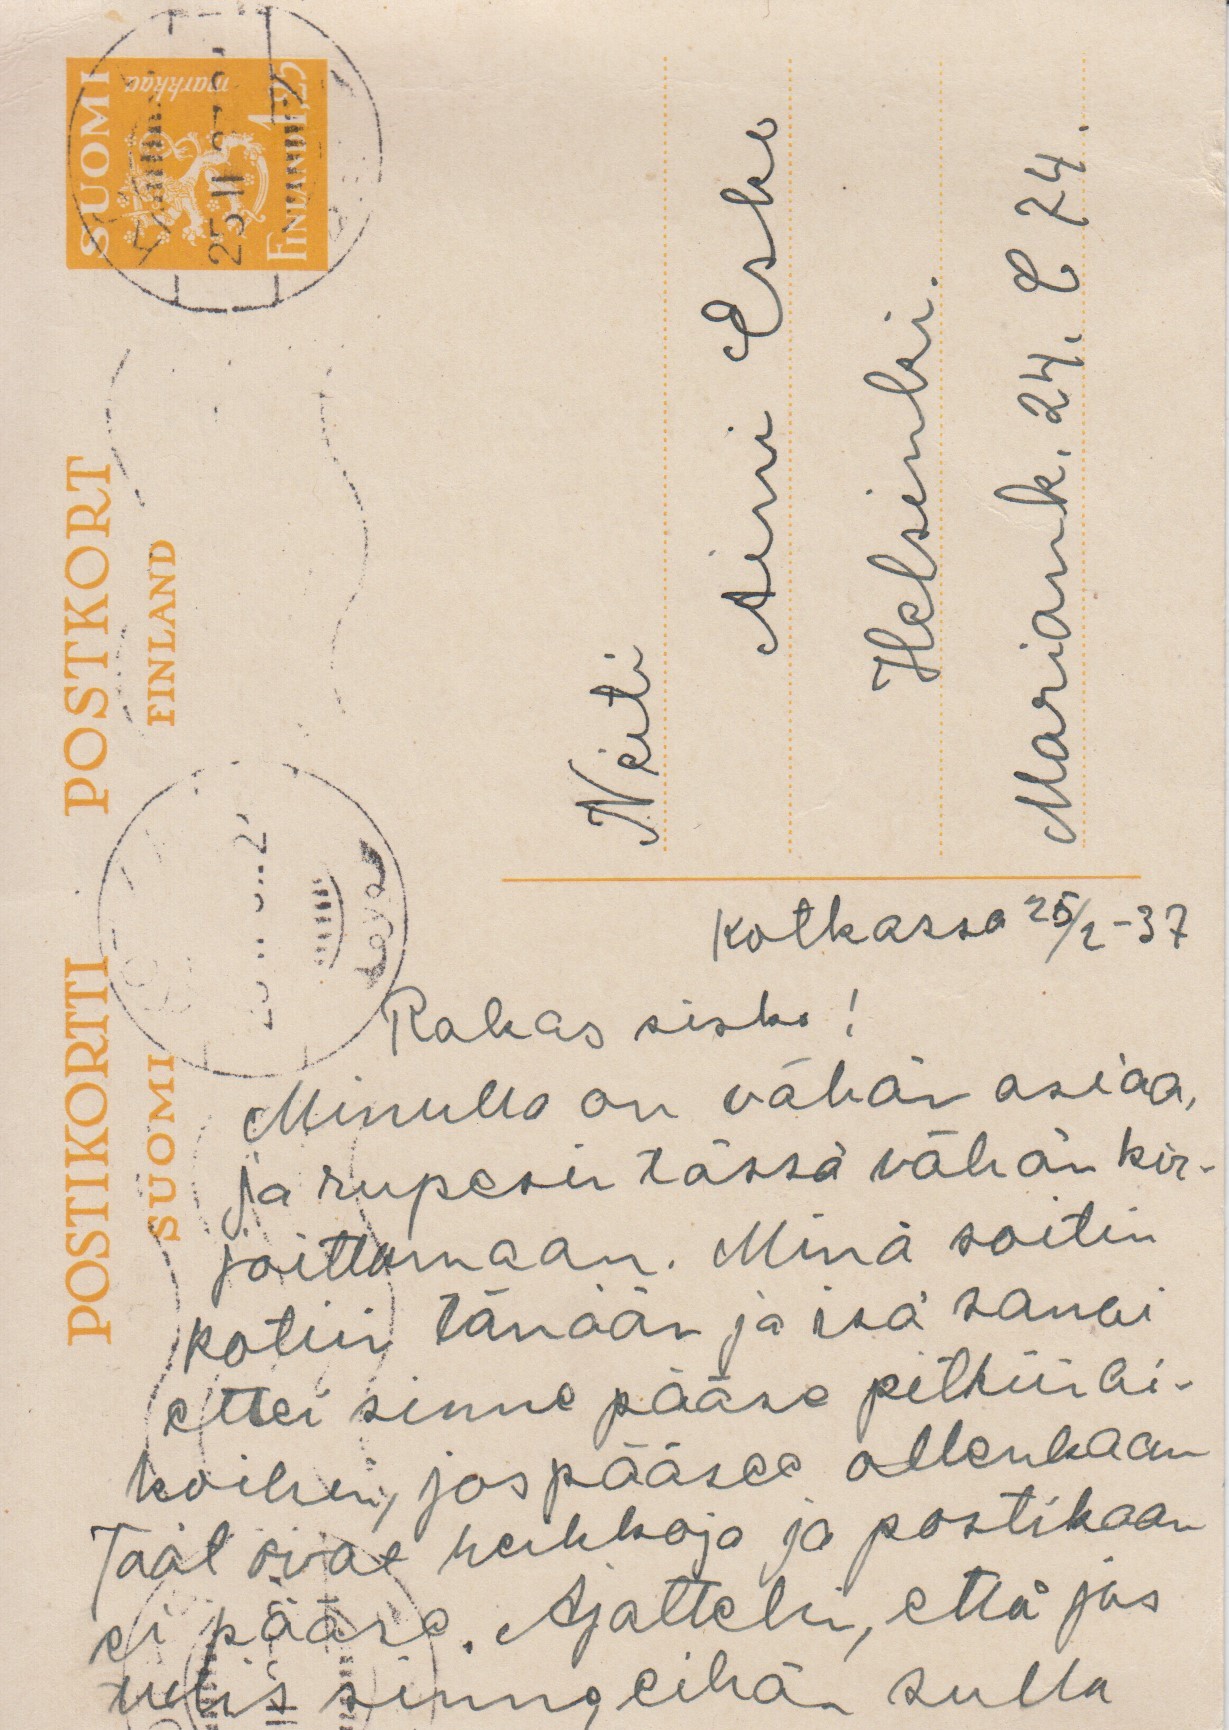 SUOMI
markkaa
1,25
FINLAND
25 II
POSTIKORTTI POSTKORT
SUOMI FINLAND
Neiti
Aini Esko
Helsinki.
Mariank. 24. C 74.
Kotkassa 25/2 -37
Rakas sisko!
Minulla on vähän asiaa,
ja rupesin tässä vähän kir-
joittamaan. Minä soitin
kotiin tänään ja isä sanoi
ettei sinne pääse pitkiin ai-
koihin, jos pääsee ollenkaan
Tääl ovat heikkoja ja postikaan
ei pääse. Ajattelin, että jos
tulis sinne, eihän sulla